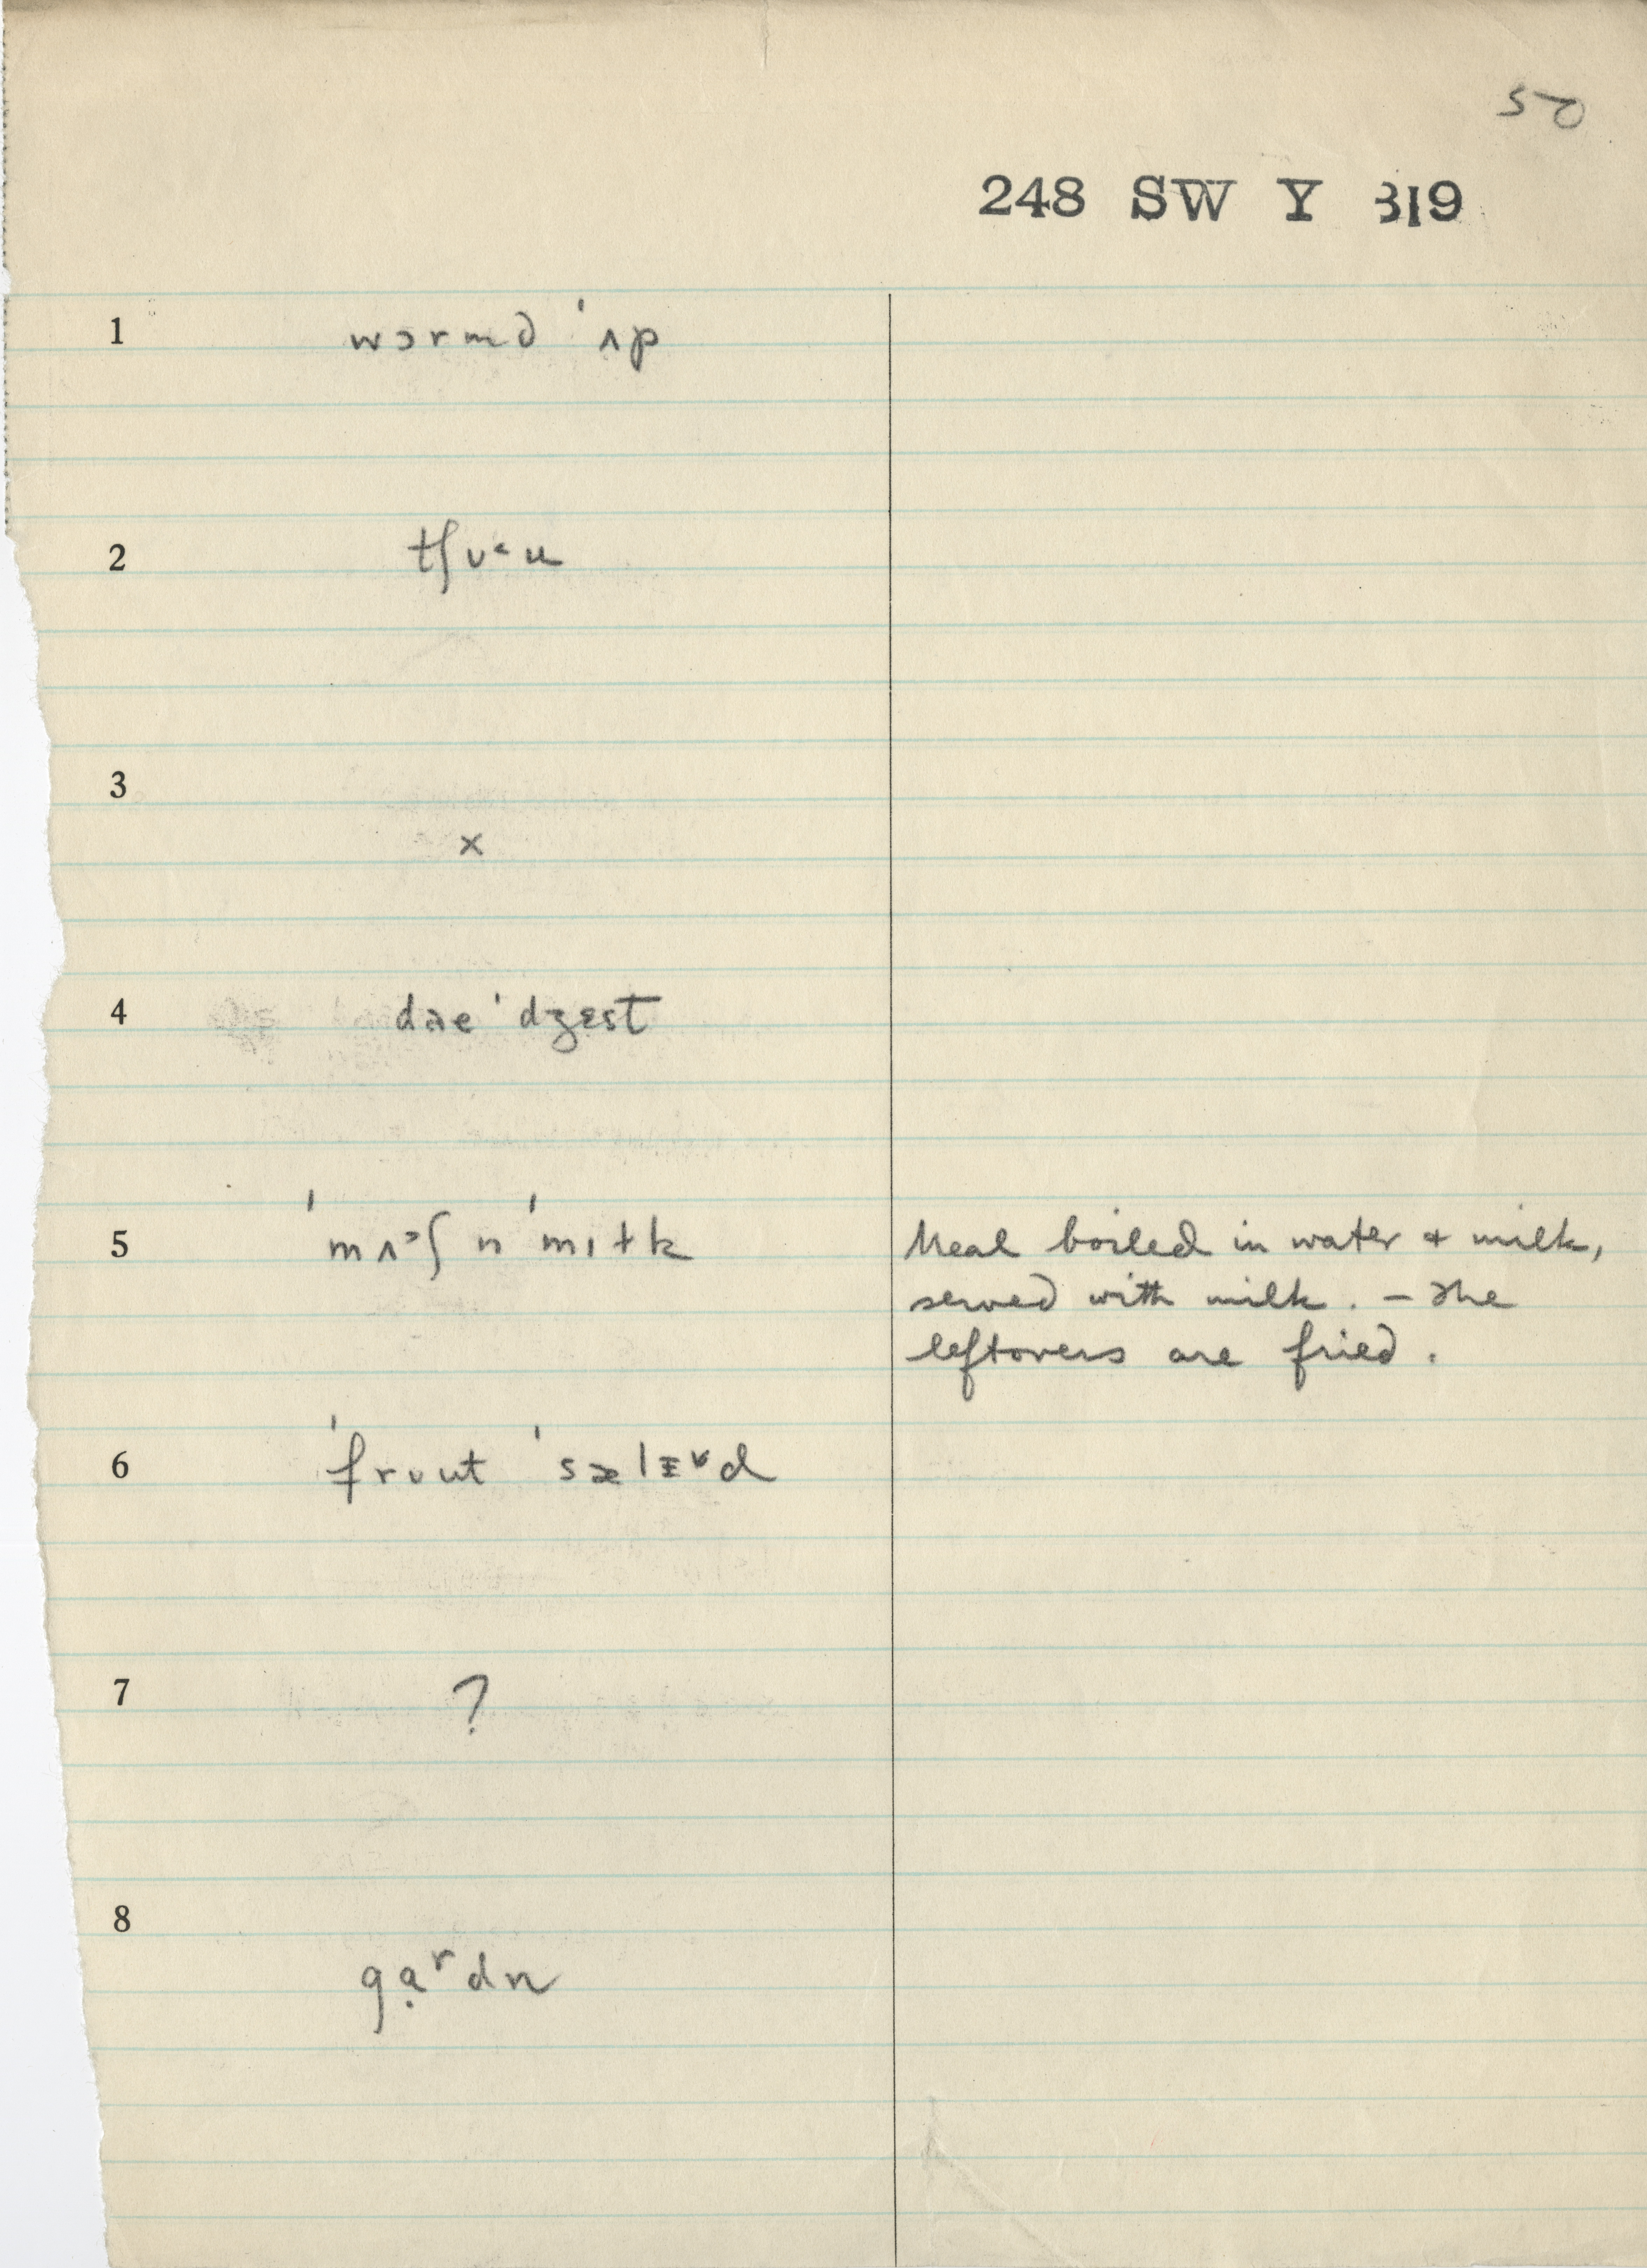 50
248 SW Y 319
1 wɔrmd ˈʌp
2 tʃʊ˂u
3 ×
4 daeˈdʒɛst
5 ˈmʌᵓʃ n ˈmɪɫk Meal boiled in water + milk,
served with milk. – The
leftovers are fried.
6 ˈfrʊut ˈsælɪ̵ᵛd
7 ?
8 gạʳdn